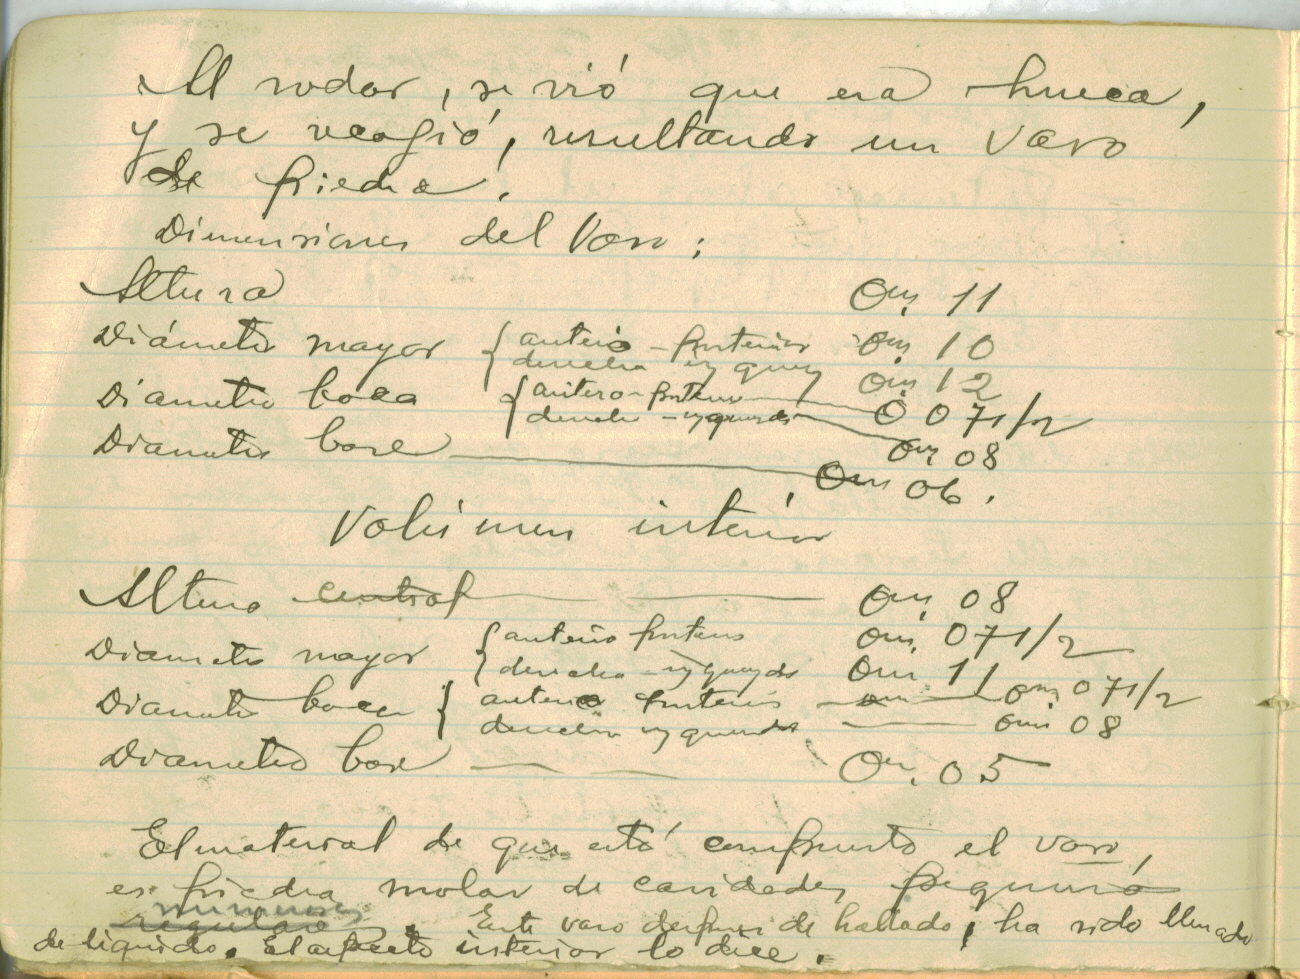 Al rodar, se vió que era hueca,
y se recogió, resultando un vaso
de piedra.
Dimensiones del Vaso:
Altura 0m. 11
Diámetro mayor { antero-posterior 0m. 10
derecha izquierda 0m 12
Diametro boca { antero-posterior 0 07 1/2
derecha-izquierda 0m 08
Diametro base 0m 06.
Volúmen interior
Altura central 0m. 08
Diametro mayor { antero posterior 0m. 07 1/2
derecha-izquierda 0m 11
Diametro boca { antero posterior 0m 07 1/2
derecha izquierda 0m 08
Diametro base 0m. 05
El material de que está compuesto el vaso,
es piedra molar de cavidades pequeñas
numerosas
regular. Este vaso después de hallado, ha sido llenado
de líquido. El aspecto interior lo dice.